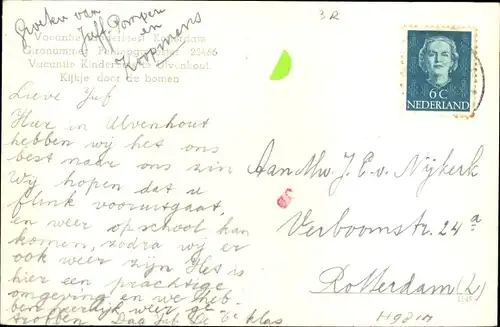 Groeten van
Juff. Pompen
en
Koopmans
Vacantie
Gironummer 23466
Vacantie Kinder Ulvenhout
Kijkje door de bomen
3R
6 C
NEDERLAND
Lieve Juf
Hier in Ulvenhout
hebben wij het ons
best naar ons zin
Wij hopen dat u
flink vooruitgaat,
en weer op school kan
komen, zodra wij er
ook weer zijn Het is
hier een prachtige
omgeving en we heb-
ben weer ge-
troffen. Daa Juf de 6e klas
Aan Mw. J.C. v. Nijkerk
Verboomstr. 24a
Rotterdam (Z)